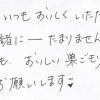 いつも おいしく いただ
緒に ― たまりません
も、おいしい 巣ごもり
お願いします